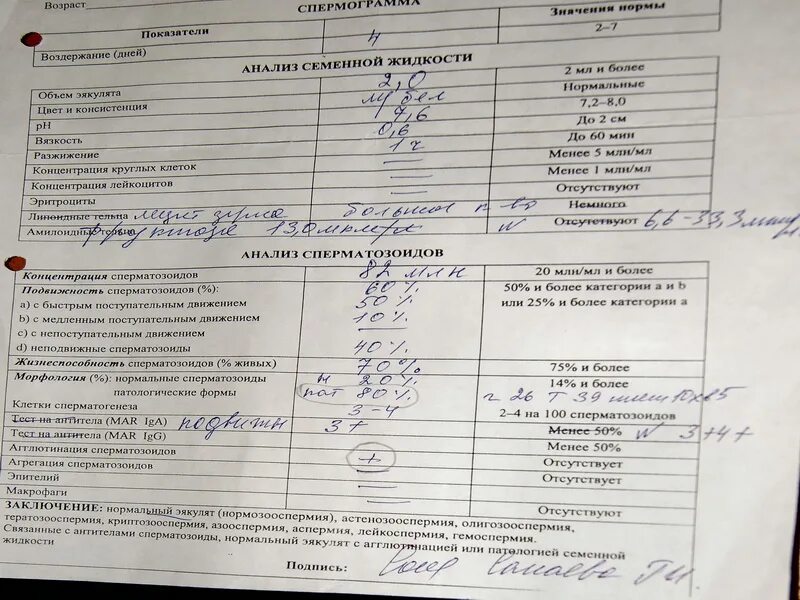 Возраст
СПЕРМОГРАММА
Показатели Значения нормы
Воздержание (дней) 4 2–7
АНАЛИЗ СЕМЕННОЙ ЖИДКОСТИ
Объем эякулята 2,0 2 мл и более
Цвет и консистенция бел Нормальные
pH 7,6 7,2–8,0
Вязкость 0,6 До 2 см
Разжижение 1 ч До 60 мин
Концентрация круглых клеток — Менее 5 млн/мл
Концентрация лейкоцитов — Менее 1 млн/мл
Эритроциты — Отсутствуют
Липоидные тельца лецит зерна большое к-во Немного
Амилоидные тельца фруктоза 13,0 N Отсутствуют 6,6–33,3
АНАЛИЗ СПЕРМАТОЗОИДОВ
Концентрация сперматозоидов 82 млн 20 млн/мл и более
Подвижность сперматозоидов (%): 60% 50% и более категории a и b
a) с быстрым поступательным движением 50% или 25% и более категории a
b) с медленным поступательным движением 10%
c) с непоступательным движением —
d) неподвижные сперматозоиды 40%
Жизнеспособность сперматозоидов (% живых) 70% 75% и более
Морфология (%): нормальные сперматозоиды н 20% 14% и более
патологические формы пат 80% г 26 т 39
Клетки сперматогенеза 3–4 2–4 на 100 сперматозоидов
Тест на антитела (MAR IgA) подвижн 3+ Менее 50% N 3+4+
Тест на антитела (MAR IgG) Менее 50%
Агглютинация сперматозоидов + Отсутствует
Агрегация сперматозоидов — Отсутствует
Эпителий —
Макрофаги — Отсутствуют
ЗАКЛЮЧЕНИЕ: нормальный эякулят (нормозооспермия), астенозооспермия, олигозооспермия,
тератозооспермия, криптозооспермия, азооспермия, аспермия, лейкоспермия, гемоспермия.
Связанные с антителами сперматозоиды, нормальный эякулят с агглютинацией или патологией семенной
жидкости
Подпись: